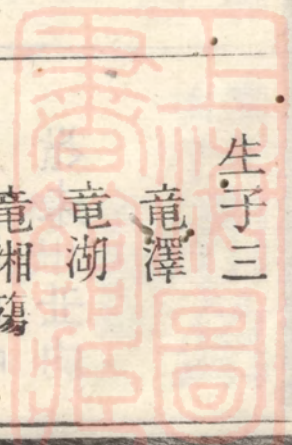 生子三
竜澤
竜湖
竜湘殤